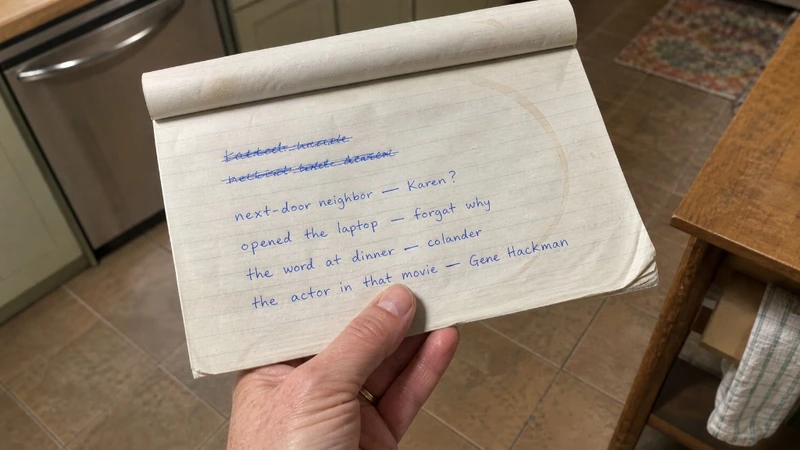 next-door neighbor — Karen?
opened the laptop — forgat why
the word at dinner — colander
the actor in that movie — Gene Hackman